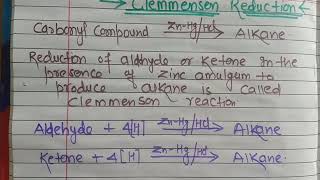 Clemmensen Reduction
Carbonyl Compound Zn-Hg/Hcl → Alkane
Reduction of aldhyde or Ketone in the
presence of zinc amulgum to
produce alkane is called
Clemmenson reaction
Aldehyde + 4[H] Zn-Hg/Hcl → Alkane
Ketone + 4[H] Zn-Hg/Hcl → Alkane.